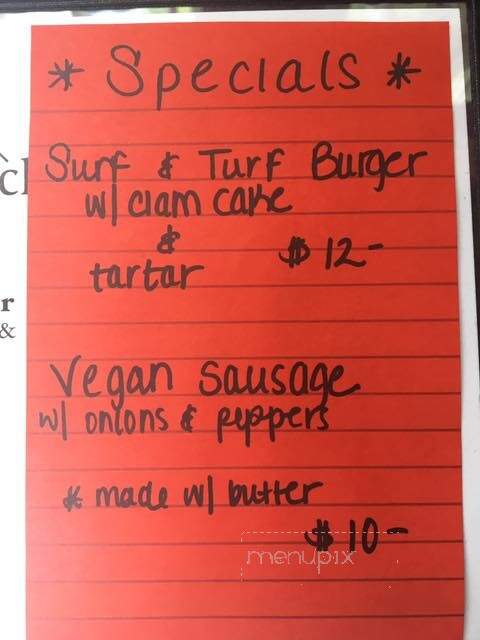 * Specials *
Surf & Turf Burger
w/ clam cake
&
tartar $12-
Vegan Sausage
w/ onions & peppers
* made w/ butter
$10-
menupix
r
&